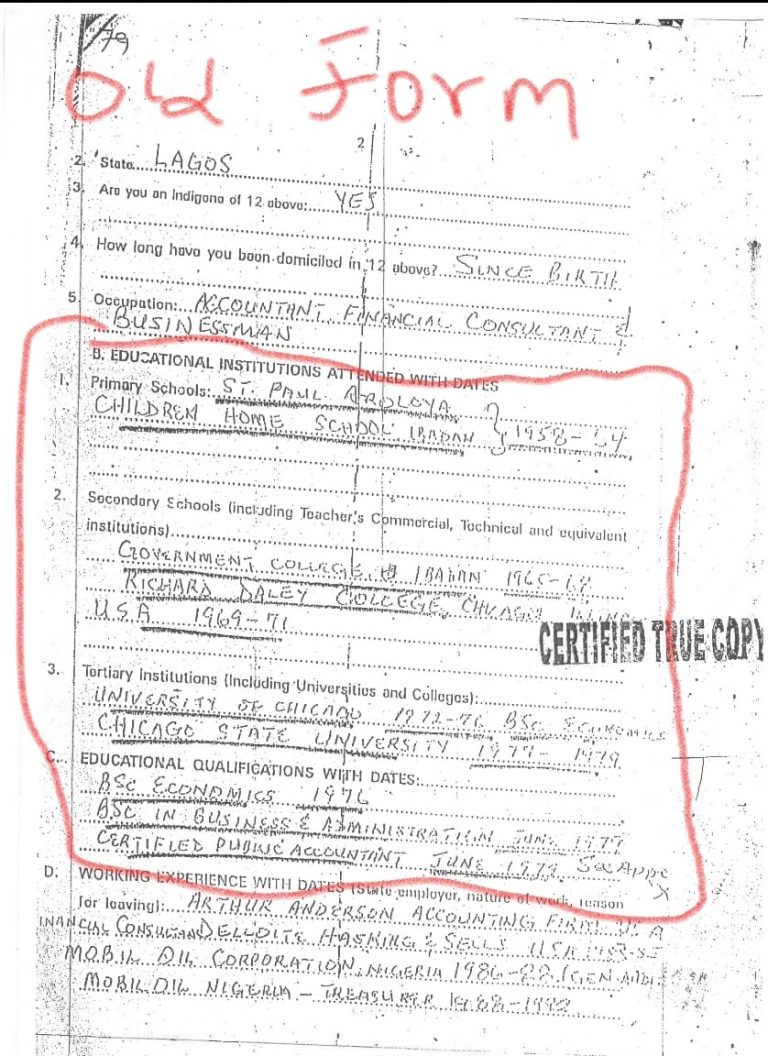 79
Old Form
2
2. State LAGOS
3. Are you an Indigene of 12 above: YES
4. How long have you been domiciled in 12 above? SINCE BIRTH
5. Occupation: ACCOUNTANT FINANCIAL CONSULTANT &
BUSINESSMAN
B. EDUCATIONAL INSTITUTIONS ATTENDED WITH DATES
1. Primary Schools: ST. PAUL AROLOYA
CHILDREN HOME SCHOOL IBADAN } 1958-64
2. Secondary Schools (including Teacher's Commercial, Technical and equivalent
institutions)
GOVERNMENT COLLEGE IBADAN 1965-68
RICHARD DALEY COLLEGE CHICAGO
U.S.A 1969-71
CERTIFIED TRUE COPY
3. Tertiary Institutions (Including Universities and Colleges):
UNIVERSITY OF CHICAGO 1972-76 BSc ECONOMICS
CHICAGO STATE UNIVERSITY 1977-1979
C. EDUCATIONAL QUALIFICATIONS WITH DATES:
BSC ECONOMICS 1976
BSC IN BUSINESS & ADMINISTRATION JUNE 1979
CERTIFIED PUBLIC ACCOUNTANT JUNE 1979
D. WORKING EXPERIENCE WITH DATES (State employer, nature of work, reason
for leaving): ARTHUR ANDERSON ACCOUNTING FIRM
INANCIAL CONSULTAN DELLOITE HASKING & SELLS USA 1983-85
MOBIL OIL CORPORATION, NIGERIA 1986-88
MOBIL OIL NIGERIA - TREASURER 1988-1992